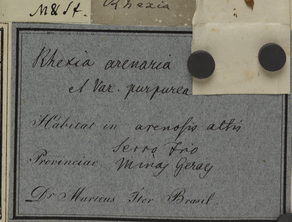 M & St.
Rhexia
Rhexia arenaria
et Var. purpurea
Habitat in arenosis altis
Serro Frio
Provinciae Minas Geraes
Dr Martius Iter Brasil.